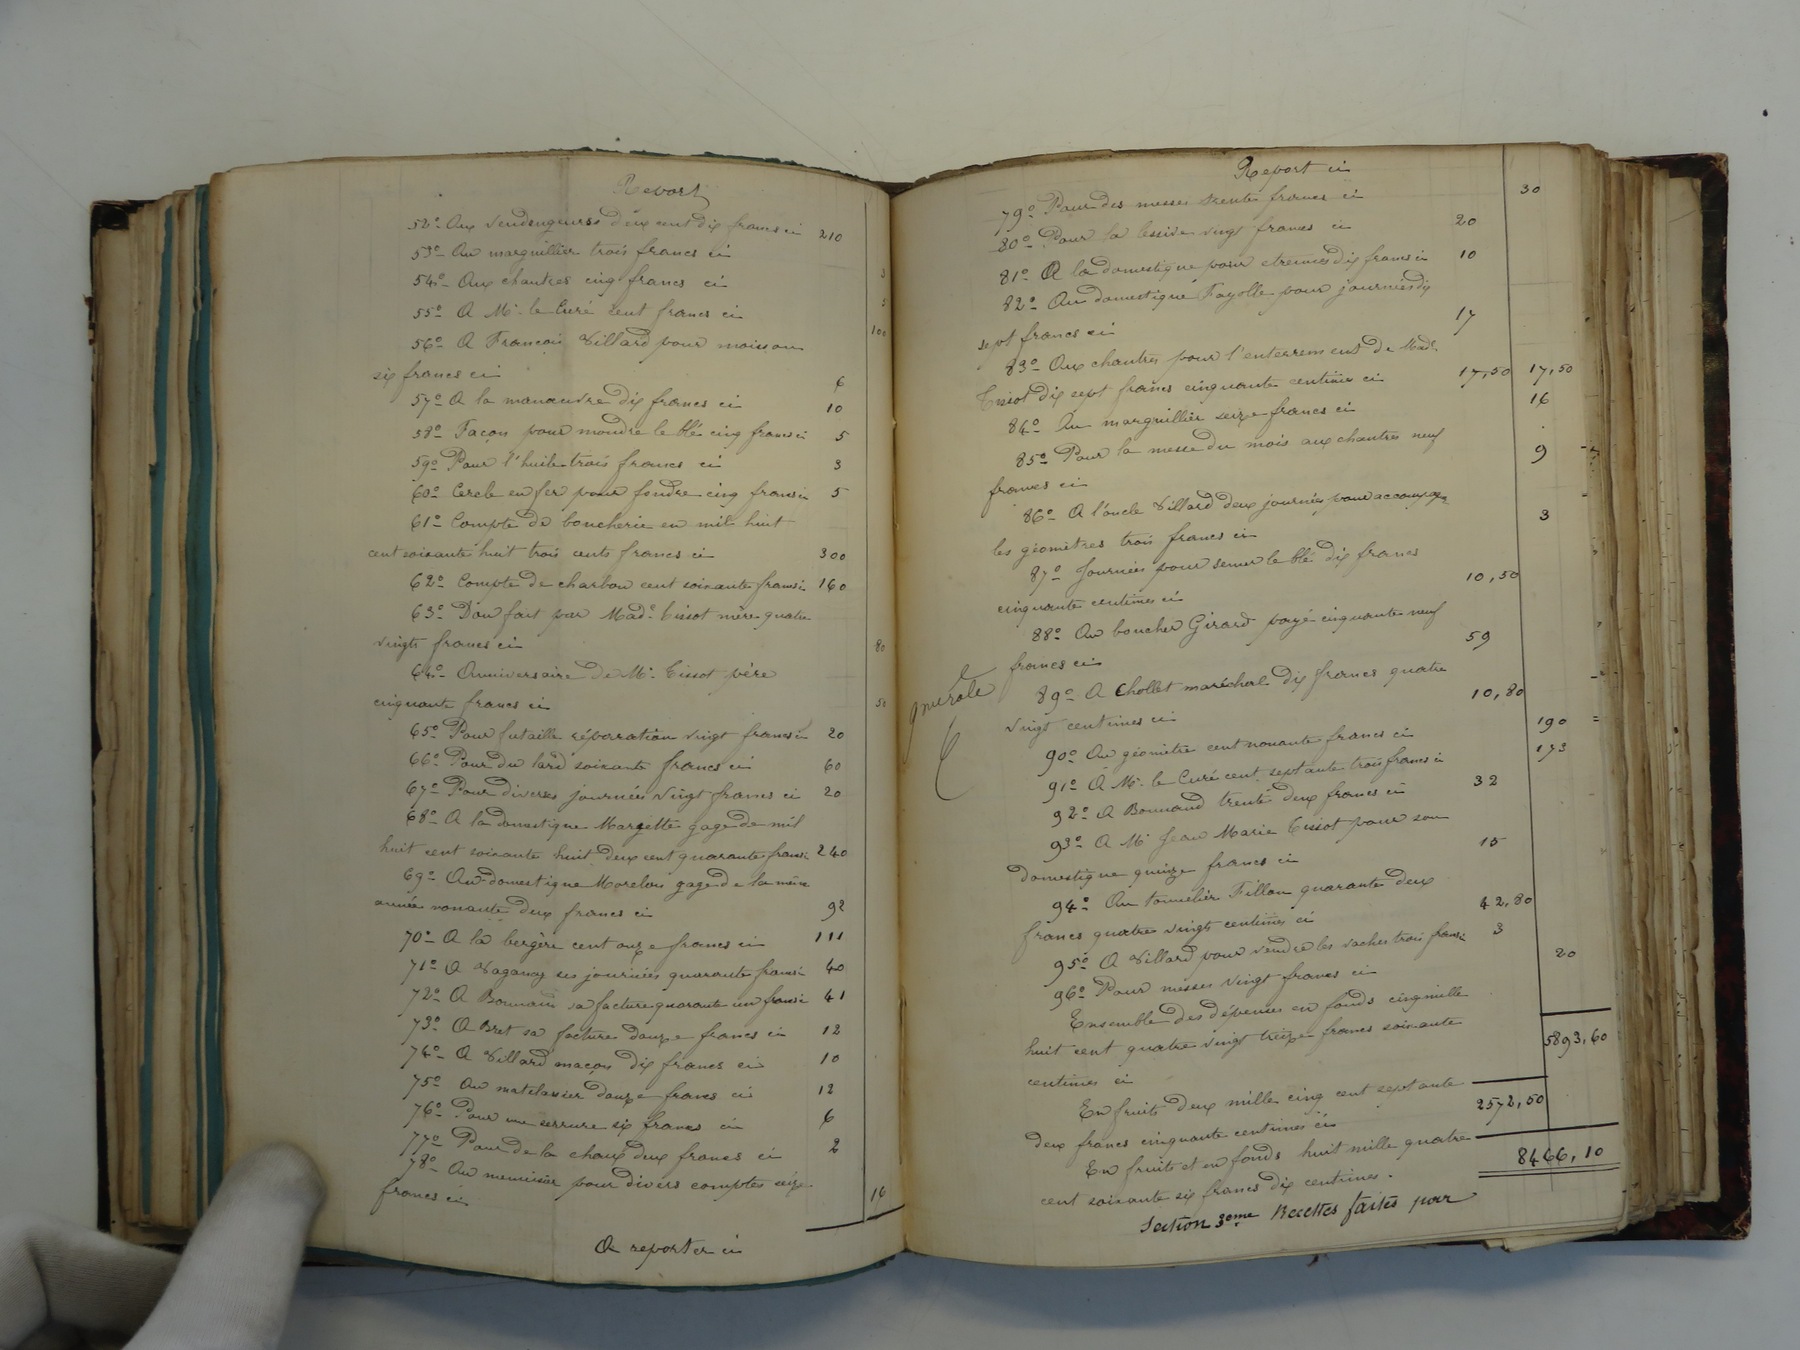 Report
52° Aux vendengeurs deux cent dix francs ci 210
53° Au marguillier trois francs ci 3
54° Aux chantres cinq francs ci 5
55° A Mr. le Curé cent francs ci 100
56° A François Villard pour moisson
six francs ci 6
57° A la manœuvre dix francs ci 10
58° Façon pour moudre le blé cinq francs ci 5
59° Pour l'huile trois francs ci 3
60° Cercle en fer pour foudre cinq francs ci 5
61° Compte de boucherie en mil huit
cent soixante huit trois cents francs ci 300
62° Compte de charbon cent soixante francs ci 160
63° Don fait par Made. Tissot mère quatre
vingts francs ci 80
64° Anniversaire de Mr. Tissot père
cinquante francs ci 50
65° Pour futaille réparation vingt francs ci 20
66° Pour du lard soixante francs ci 60
67° Pour diverses journées vingt francs ci 20
68° A la domestique Mariette gage de mil
huit cent soixante huit deux cent quarante francs ci 240
69° Au domestique Morelon gage de la même
année nonante deux francs ci 92
70° A la bergère cent onze francs ci 111
71° A Vaganay ses journées quarante francs ci 40
72° A Bonnain sa facture quarante un francs ci 41
73° A Bret sa facture douze francs ci 12
74° A Villard maçon dix francs ci 10
75° Au matelassier douze francs ci 12
76° Pour une serrure six francs ci 6
77° Pour de la chaux deux francs ci 2
78° Au menuisier pour divers comptes seize
francs ci 16
A reporter ci
Report ci
79° Pour des messes trente francs ci 30
80° Pour la lessive vingt francs ci 20
81° A la domestique pour etrennes dix francs ci 10
82° Au domestique Fayolle pour journées dix
sept francs ci 17
83° Aux chantres pour l'enterrement de Made.
Tissot dix sept francs cinquante centimes ci 17,50 17,50
84° Au marguillier seize francs ci 16
85° Pour la messe du mois aux chantres neuf
francs ci 9
86° A l'oncle Villard deux journées pour accompagn
les géomètres trois francs ci 3
87° Journées pour semer le blé dix francs
cinquante centimes ci 10,50
88° Au boucher Girard payé cinquante neuf
francs ci 59
89° A Chollet maréchal dix francs quatre
vingt centimes ci 10,80
90° Au géomètre cent nonante francs ci 190
91° A Mr. le Curé cent septante trois francs ci 173
92° A Bonnand trente deux francs ci 32
93° A Mr Jean Marie Tissot pour son
domestique quinze francs ci 15
94° Au tonnelier Fillon quarante deux
francs quatre vingts centimes ci 42,80
95° A Villard pour vendre les vaches trois francs ci 3
96° Pour messes vingt francs ci 20
Ensemble des dépenses en fonds cinq mille
huit cent quatre vingt treize francs soixante
centimes ci 5893,60
En fruits deux mille cinq cent septante
deux francs cinquante centimes ci 2572,50
En fruits et en fonds huit mille quatre
cent soixante six francs dix centimes. 8466,10
Section 3eme Recettes faites par